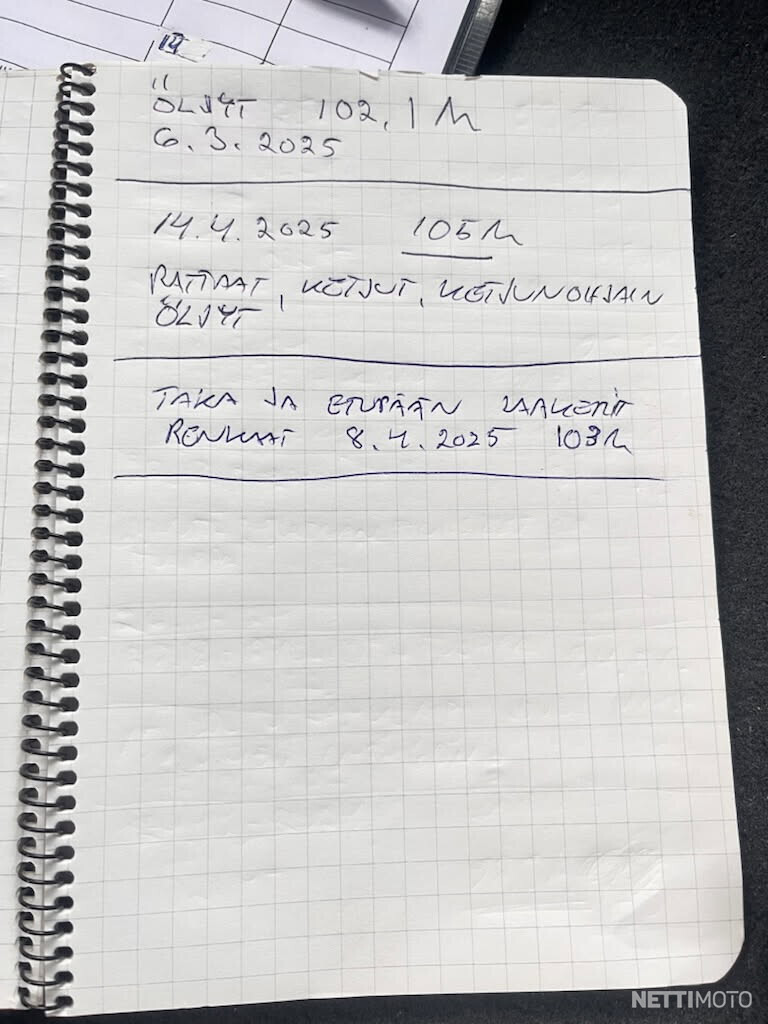 14
ÖLJYT 102,1 h
6.3.2025
14.4.2025 105h
RATTAAT, KETJUT, KETJUNOHJAIN
ÖLJYT
TAKA JA ETUPÄÄN LAAKERIT
RENKAAT 8.4.2025 103h
NETTIMOTO